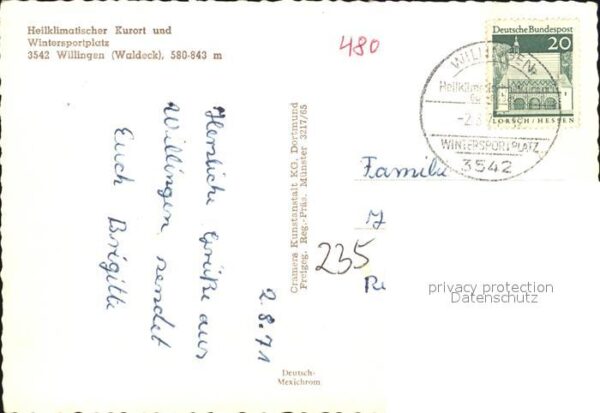 Heilklimatischer Kurort und
Wintersportplatz
3542 Willingen (Waldeck), 580-843 m
480
Deutsche Bundespost
20
LORSCH/HESSEN
WILLINGEN
Heilklimat
-2.8.
WINTERSPORTPLATZ
3542
2.8.71
Herzliche Grüße aus
Willingen sendet
Euch Brigitte
Cramers Kunstanstalt KG. Dortmund
Freigeg. Reg.-Präs. Münster 3217/65
Familie
235
Re
privacy protection
Datenschutz
Deutsch-
Mexichrom